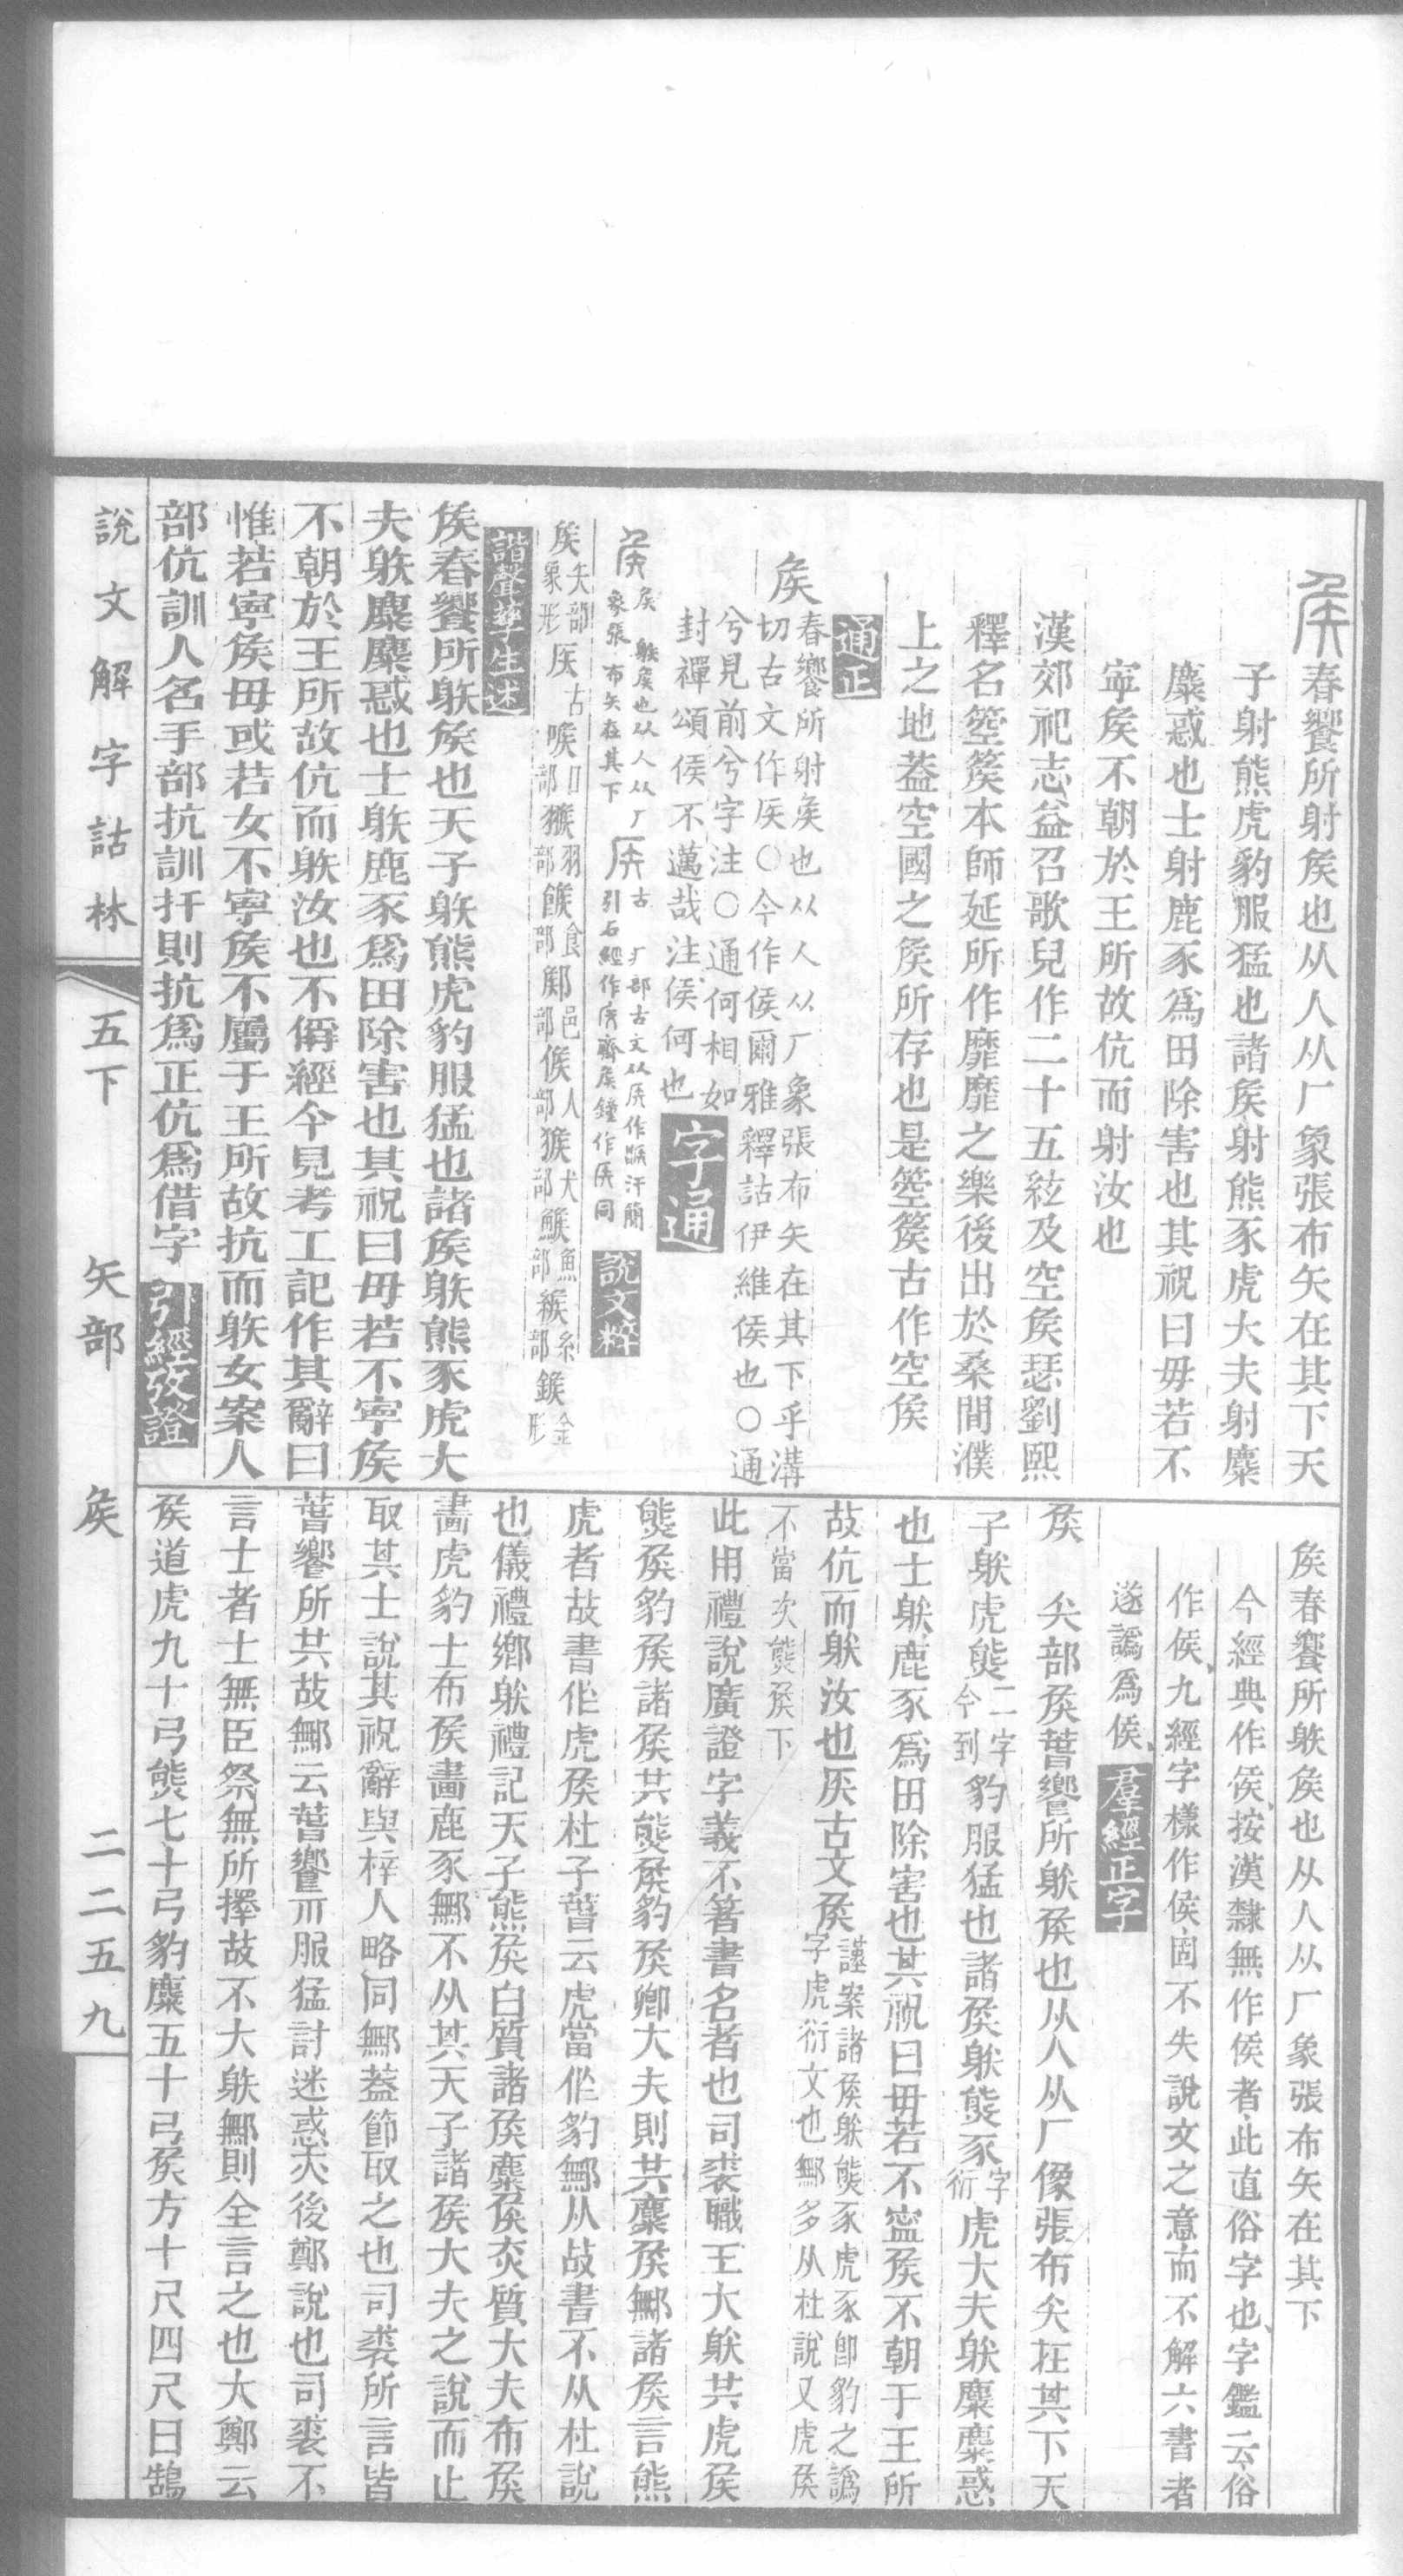 矦春饗所射矦也从人从厂象張布矢在其下天
子射熊虎豹服猛也諸矦射熊豕虎大夫射麋
麋惑也士射鹿豕爲田除害也其祝曰毋若不
寍矦不朝於王所故伉而射汝也
漢郊祀志益召歌兒作二十五絃及空矦瑟劉熙
釋名箜篌本師延所作靡靡之樂後出於桑間濮
上之地葢空國之矦所存也是箜篌古作空矦
通正
矦
春饗所射矦也从人从厂象張布矢在其下乎溝
切古文作𥎦○今作侯爾雅釋詁伊維侯也○通
兮見前兮字注○通何相如
封禪頌侯不邁哉注侯何也
字通
矦 矦 躲矦也从人从厂
象張布矢在其下
𥎦古 疒部古文从𥎦作
引石經作𥎦齊矦鐘作𥎦同
說文粹
矦矢部象形𥎦古喉口部翭羽部餱食部鄇邑部候人部猴犬部鯸魚部緱糸部鍭金形
諧聲孳生述
矦春饗所躲矦也天子躲熊虎豹服猛也諸矦躲熊豕虎大
夫躲麋麋惑也士躲鹿豕爲田除害也其祝曰毋若不寧矦
不朝於王所故伉而躲汝也不偁經今見考工記作其辭曰
惟若寧矦毋或若女不寧矦不屬于王所故抗而躲女案人
部伉訓人名手部抗訓扞則抗爲正伉爲借字
引經攷證
矦春饗所躲矦也从人从厂象張布矢在其下
今經典作侯按漢隸無作侯者此直俗字也字鑑云俗
作侯九經字樣作侯固不失說文之意而不解六書者
遂譌爲侯
羣經正字
矦 矢部矦萅饗所躲矦也从人从厂像張布矢在其下天
子躲虎熊二字今到豹服猛也諸矦躲熊豕字衍虎大夫躲麋麋惑
也士躲鹿豕爲田除害也其祝曰毋若不寍矦不朝于王所
故伉而躲汝也𥎦古文矦
謹案諸矦躲熊豕虎豕卽豹之譌
字虎衍文也鄦多从杜說又虎矦
不當次熊矦下
此用禮說廣證字義不箸書名者也司裘職王大躲共虎矦
熊矦豹矦諸矦共熊矦豹矦卿大夫則共麋矦鄦諸矦言熊
虎者故書作虎矦杜子萅云虎當作豹鄦从故書不从杜說
也儀禮鄉躲禮記天子熊矦白質諸矦麋矦赤質大夫布矦
畫虎豹士布矦畫鹿豕鄦不从其天子諸矦大夫之說而止
取其士說其祝辭與梓人略同鄦葢節取之也司裘所言皆
萅饗所共故鄦云萅饗𠀁服猛討迷惑夾後鄭說也司裘不
言士者士無臣祭無所擇故不大躲鄦則全言之也大鄭云
矦道虎九十弓熊七十弓豹麋五十弓矦方十尺四尺曰鵠
說文解字詁林 五下 矢部 矦 二二五九